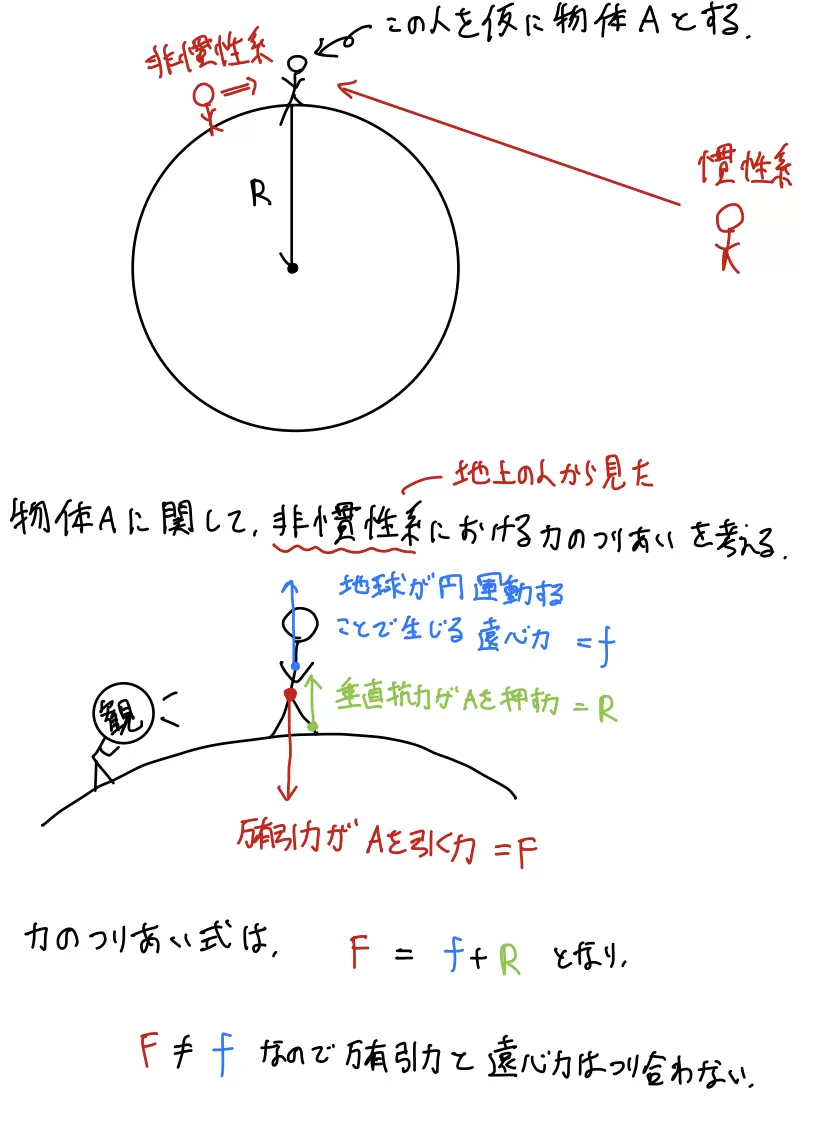 この人を仮に物体Aとする.
非慣性系
慣性系
R
地上の人から見た
物体Aに関して,非慣性系における力のつりあいを考える.
地球が円運動する
ことで生じる遠心力 = f
垂直抗力がAを押す力 = R
観
万有引力がAを引く力 = F
力のつりあい式は, F = f + R となり,
F ≠ f なので万有引力と遠心力はつり合わない.